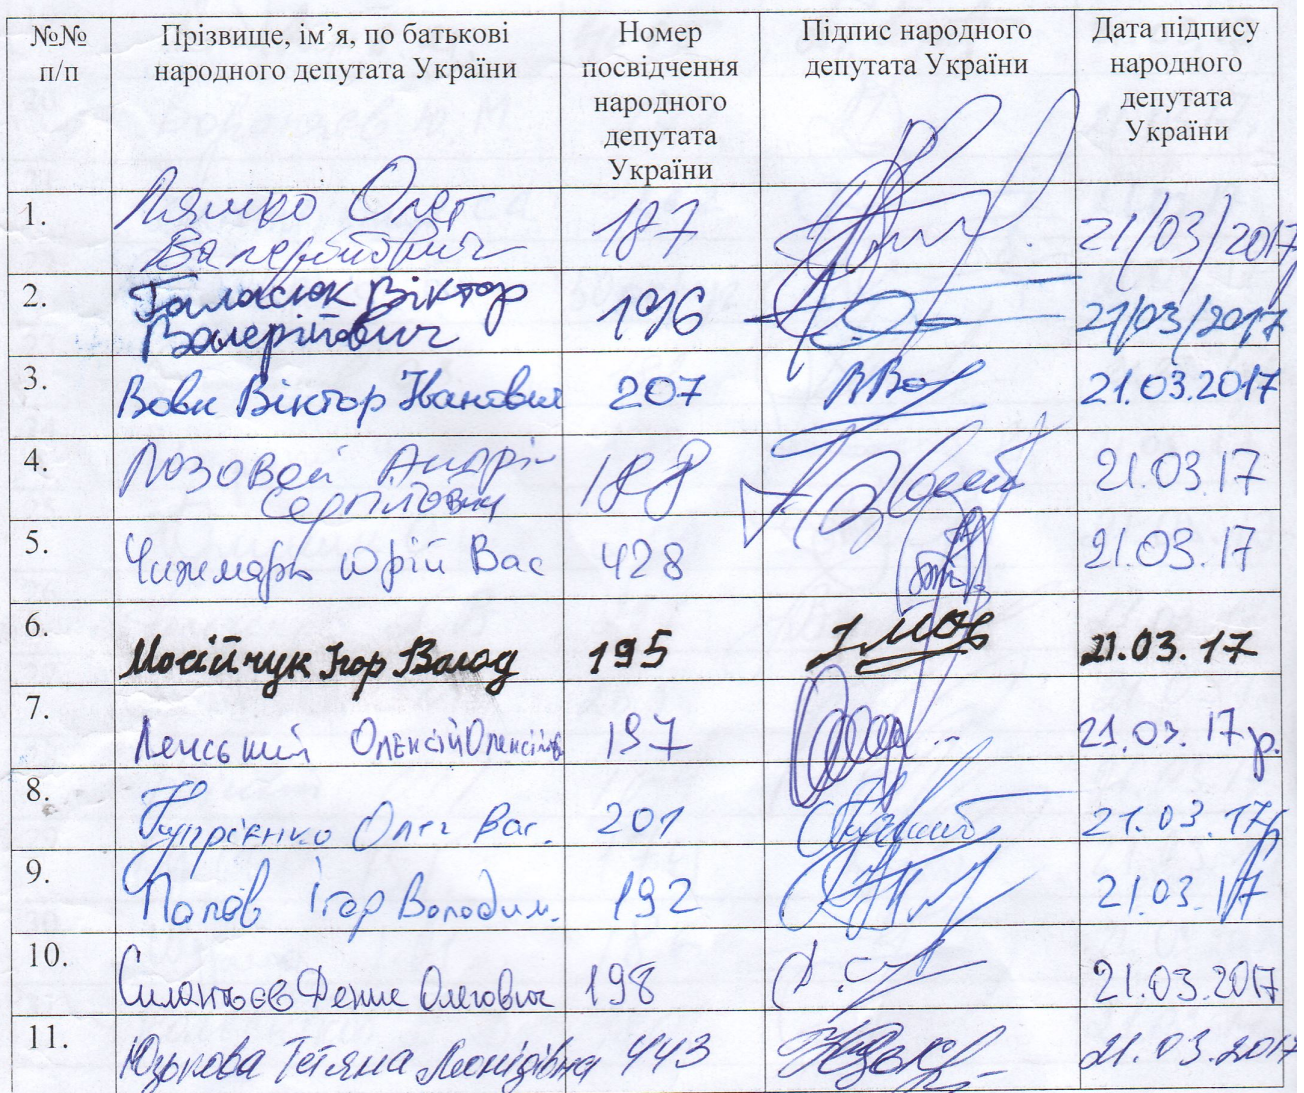 №№ п/п
Прізвище, ім’я, по батькові народного депутата України
Номер посвідчення народного депутата України
Підпис народного депутата України
Дата підпису народного депутата України
1. Ляшко Олег Валерійович 187 21/03/2017
2. Галасюк Віктор Валерійович 196 21/03/2017
3. Вовк Віктор Іванович 207 21.03.2017
4. Лозовой Андрій Сергійович 188 21.03.17
5. Чижмарь Юрій Вас 428 21.03.17
6. Мосійчук Ігор Волод 195 21.03.17
7. Ленський Олексій Олексійов 197 21.03.17р.
8. Купрієнко Олег Вас. 201 21.03.17р
9. Попов Ігор Володим. 192 21.03.17
10. Силантьєв Денис Олегович 198 21.03.2017
11. Юзькова Тетяна Леонідівна 443 21.03.2017